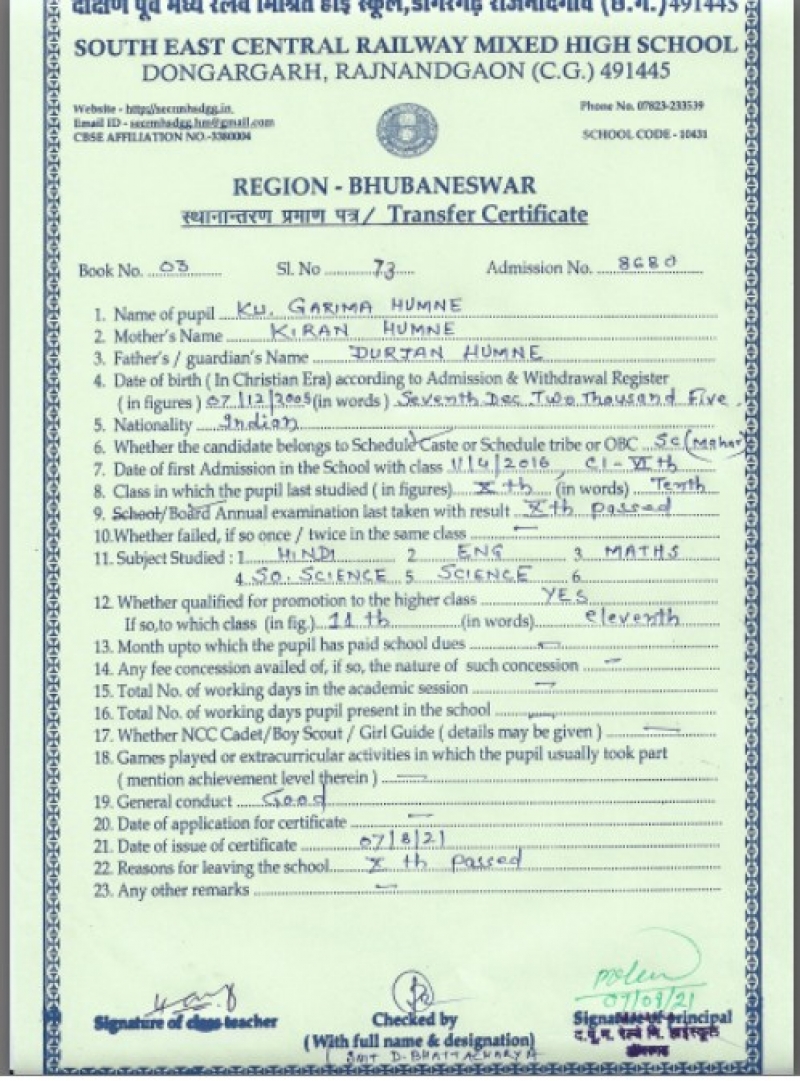 दक्षिण पूर्व मध्य रेलवे मिश्रित हाई स्कूल, डोंगरगढ़ राजनांदगांव (छ.ग.) 491445
SOUTH EAST CENTRAL RAILWAY MIXED HIGH SCHOOL
DONGARGARH, RAJNANDGAON (C.G.) 491445
Website - http://secrmhsdgg.in, Phone No. 07823-233539
Email ID - secrmhsdgg.hm@gmail.com
CBSE AFFILIATION NO.-3380004 SCHOOL CODE - 10431
REGION - BHUBANESWAR
स्थानान्तरण प्रमाण पत्र / Transfer Certificate
Book No. 03 Sl. No 73 Admission No. 8680
1. Name of pupil KU. GARIMA HUMNE
2. Mother's Name KIRAN HUMNE
3. Father's / guardian's Name DURJAN HUMNE
4. Date of birth ( In Christian Era) according to Admission & Withdrawal Register
( in figures ) 07/12/2005 (in words ) Seventh Dec Two Thousand Five.
5. Nationality Indian
6. Whether the candidate belongs to Schedule Caste or Schedule tribe or OBC SC (Mahar)
7. Date of first Admission in the School with class 1/4/2016 Cl - VI th
8. Class in which the pupil last studied ( in figures) X th (in words) Tenth
9. School/Board Annual examination last taken with result X th passed
10. Whether failed, if so once / twice in the same class —
11. Subject Studied : 1 HINDI 2 ENG 3 MATHS
4 SO. SCIENCE 5 SCIENCE 6
12. Whether qualified for promotion to the higher class YES
If so,to which class (in fig.) 11 th (in words) eleventh
13. Month upto which the pupil has paid school dues —
14. Any fee concession availed of, if so, the nature of such concession —
15. Total No. of working days in the academic session —
16. Total No. of working days pupil present in the school —
17. Whether NCC Cadet/Boy Scout / Girl Guide ( details may be given ) —
18. Games played or extracurricular activities in which the pupil usually took part
( mention achievement level therein ) —
19. General conduct Good
20. Date of application for certificate —
21. Date of issue of certificate 07/8/21
22. Reasons for leaving the school X th passed
23. Any other remarks —
07/08/21
Signature of class teacher Checked by Signature of Principal
(With full name & designation) द.पू.म. रेल्वे मि. हाईस्कूल
( SMT D. BHATTACHARYA